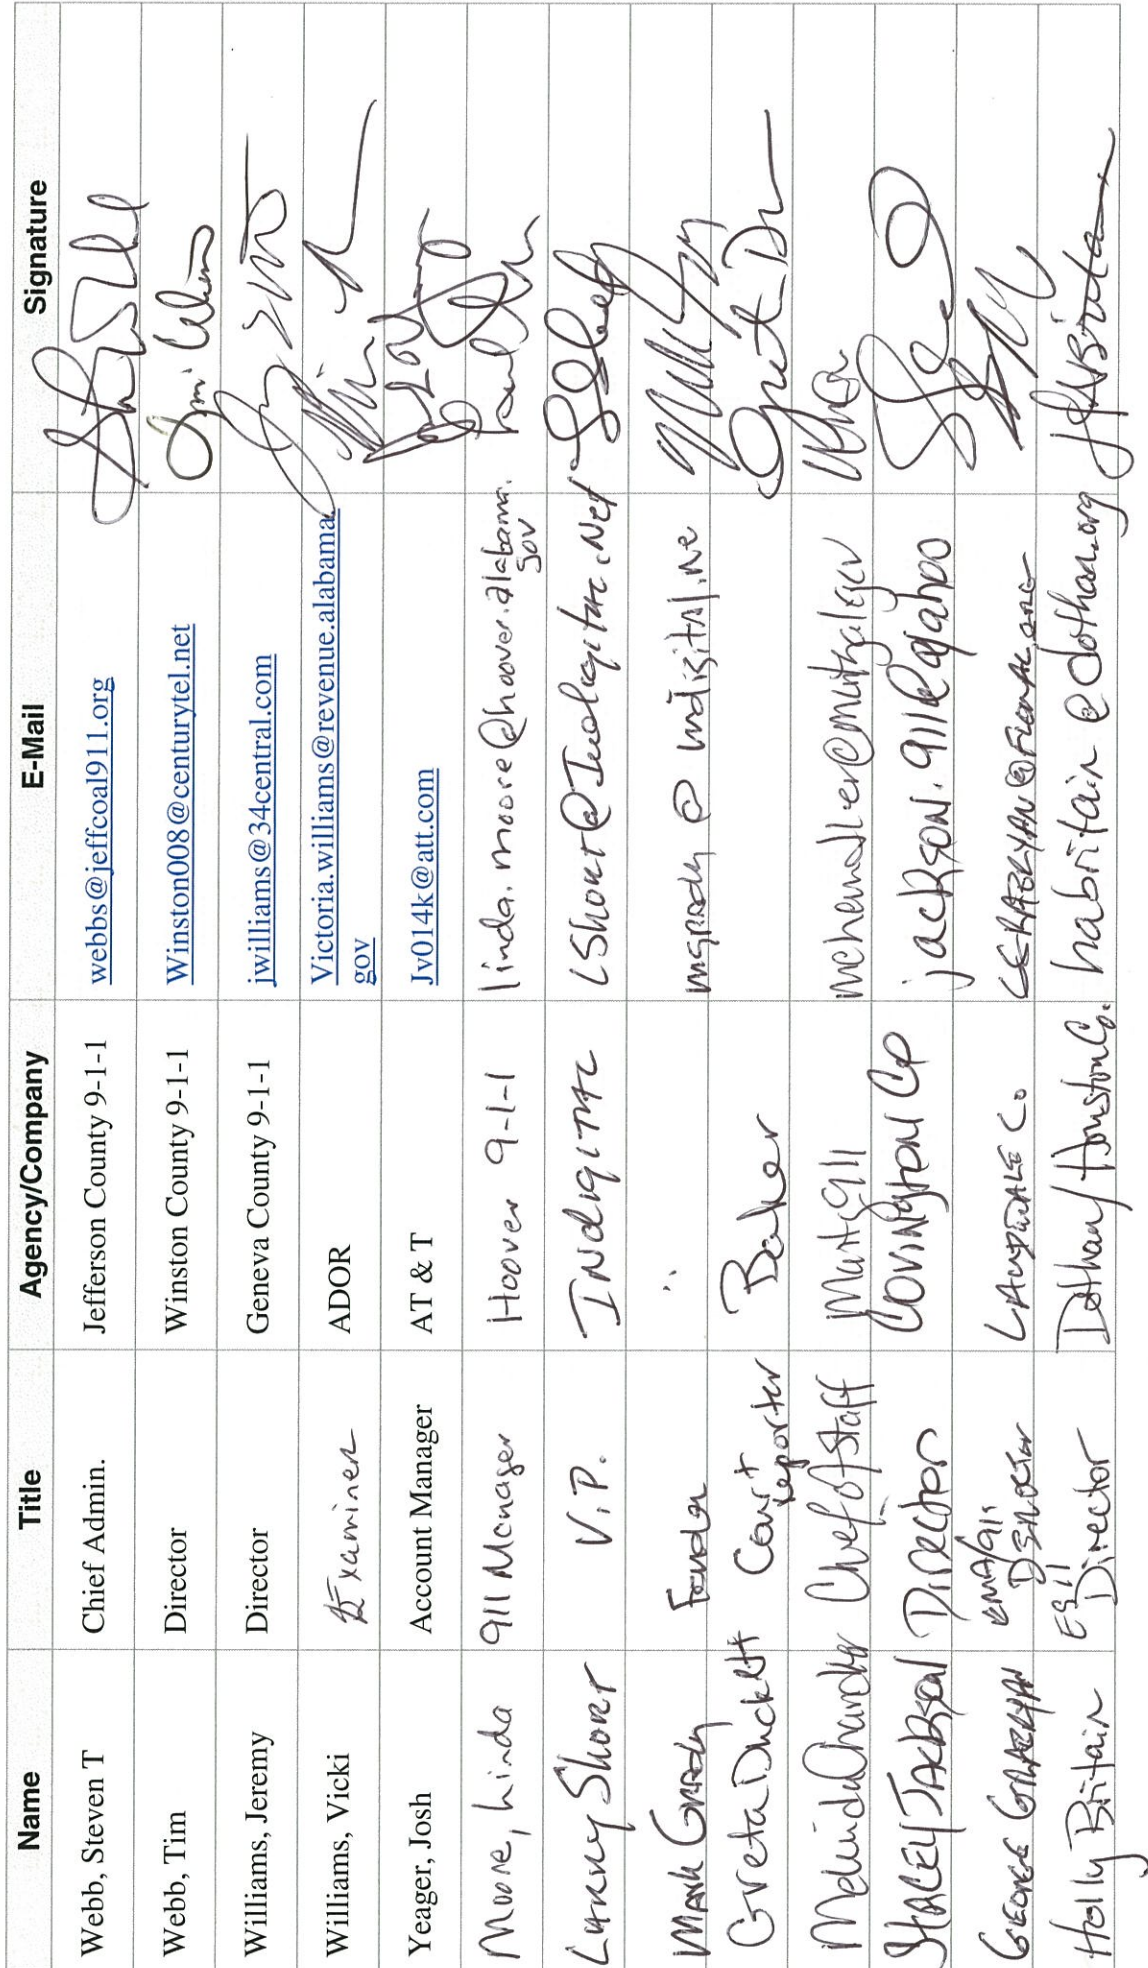 Name Title Agency/Company E-Mail Signature
Webb, Steven T Chief Admin. Jefferson County 9-1-1 webbs@jeffcoal911.org
Webb, Tim Director Winston County 9-1-1 Winston008@centurytel.net
Williams, Jeremy Director Geneva County 9-1-1 jwilliams@34central.com
Williams, Vicki Examiner ADOR Victoria.williams@revenue.alabama.
gov
Yeager, Josh Account Manager AT & T Jv014k@att.com
Moore, Linda 911 Manager Hoover 9-1-1 linda.moore@hoover.alabama.
gov
Lanny Short V.P. INdigital LShort@Indigital.Net
Mark Grady Founder " mgrady@indigital.ne
Greta Duckett Court
reporter Baker
Chandler Chief of Staff
STACEY JACKSON Director COVINGTON CO jackson.911@yahoo
GEORGE GRABRYAN EMA/911
DIRECTOR LAUDERDALE CO
Holly Britain E911
Director Dothan/Houston Co. habritain@dothan.org